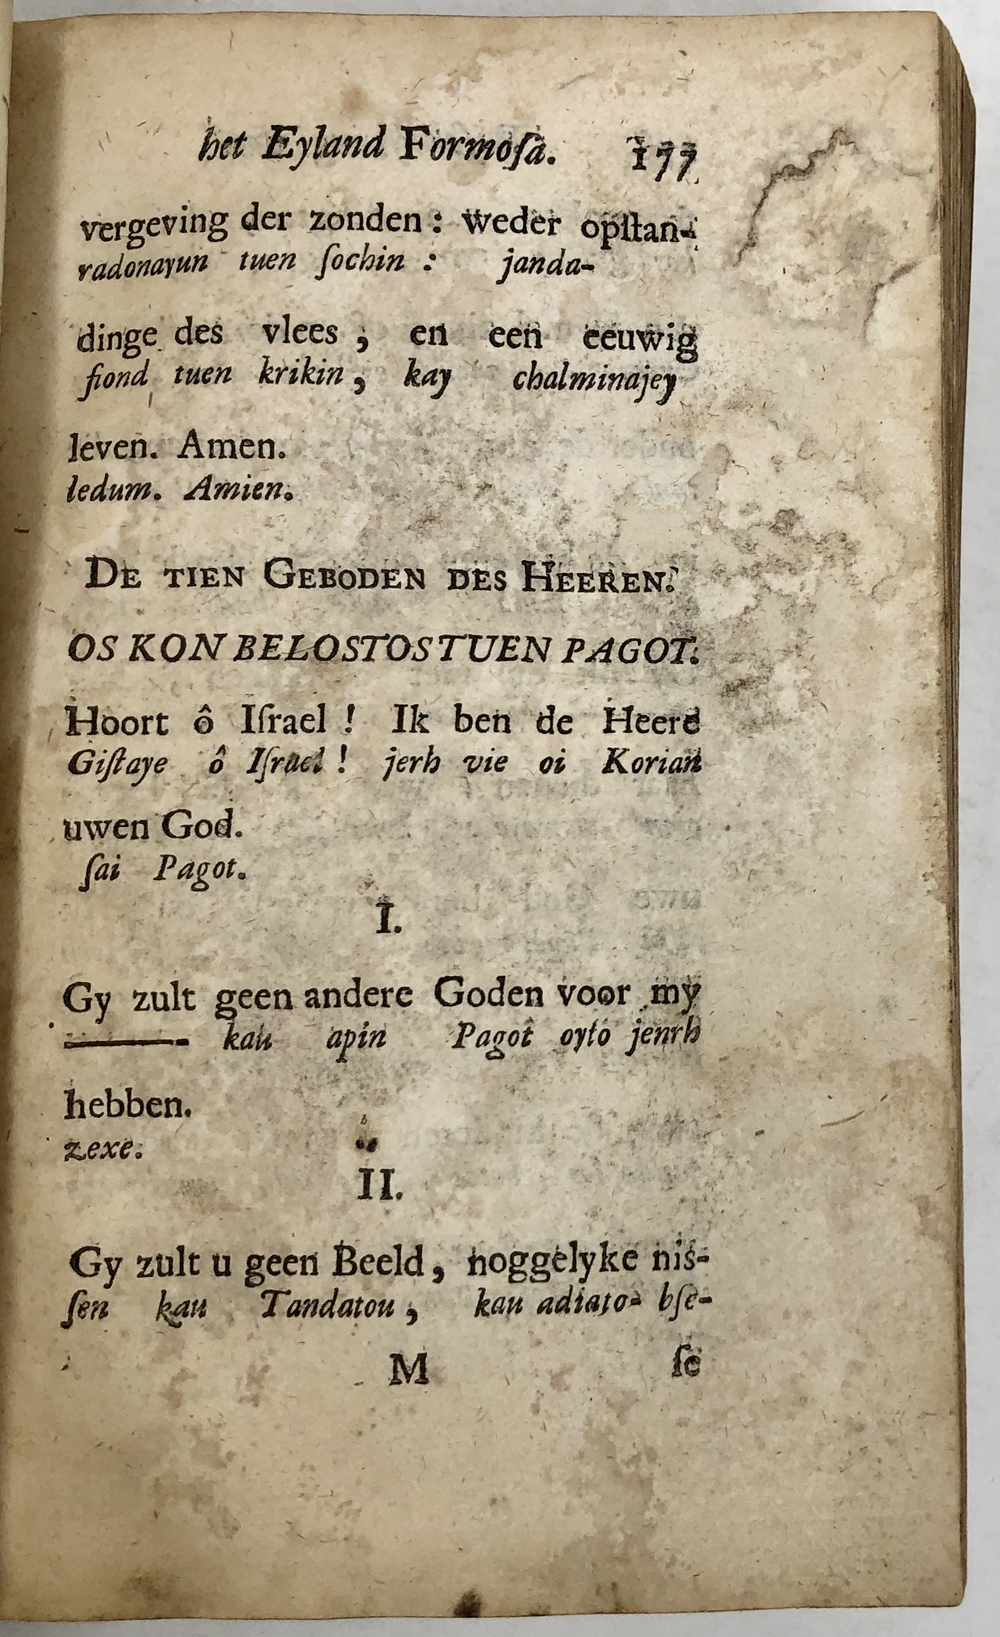 het Eyland Formoſa. 177
vergeving der zonden: weder opſtan-
radonayun tuen ſochin : janda-
dinge des vlees ; en een eeuwig
fiond tuen krikin, kay chalminajey
leven. Amen.
ledum. Amien.
DE TIEN GEBODEN DES HEEREN.
OS KON BELOSTOS TUEN PAGOT.
Hoort ô Iſrael ! Ik ben de Heere
Giſtaye ô Iſrael ! jerh vie oi Korian
uwen God.
ſai Pagot.
I.
Gy zult geen andere Goden voor my
kau apin Pagot oyto jenrh
hebben.
zexe.
II.
Gy zult u geen Beeld, noggelyke nis-
ſen kau Tandatou, kau adiato- bſe-
M ſe